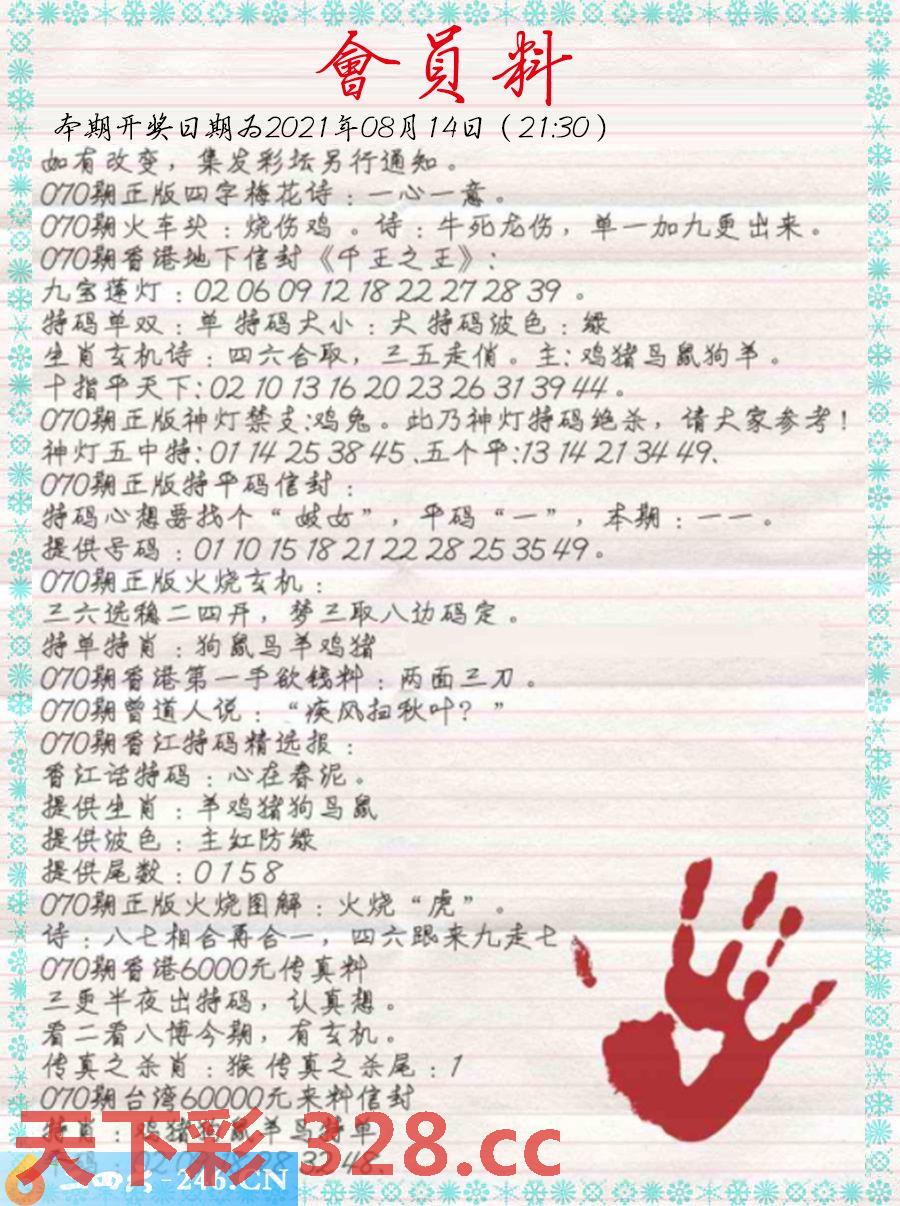 會員料
本期开奖日期为2021年08月14日（21:30）
如有改变，集发彩坛另行通知。
070期正版四字梅花诗：一心一意。
070期火车头：烧伤鸡 。诗：牛死龙伤，单一加九更出来。
070期香港地下信封《千王之王》：
九宝莲灯：02 06 09 12 18 22 27 28 39 。
特码单双：单 特码大小：大 特码波色：绿
生肖玄机诗：四六合取，三五走俏。主:鸡猪马鼠狗羊。
十指平天下:02 10 13 16 20 23 26 31 39 44 。
070期正版神灯禁支:鸡兔。此乃神灯特码绝杀，请大家参考！
神灯五中特:01 14 25 38 45 .五个平:13 14 21 34 49.
070期正版特平码信封：
特码心想要找个“ 妓女”，平码“一”，本期：一一。
提供号码：01 10 15 18 21 22 28 25 35 49 。
070期正版火烧玄机：
三六选稳二四开，梦三取八边码定。
特单特肖：狗鼠马羊鸡猪
070期香港第一手欲钱料：两面三刀 。
070期曾道人说：“疾风扫秋叶？”
070期香江特码精选报：
香江话特码：心在春泥。
提供生肖：羊鸡猪狗马鼠
提供波色：主红防绿
提供尾数：0 1 5 8
070期正版火烧图解：火烧“虎” 。
诗：八七相合再合一，四六跟来九走七
070期香港6000元传真料
三更半夜出特码，认真想。
看二看八博今期，有玄机。
传真之杀肖：猴 传真之杀尾：1
070期台湾60000元来料信封
特肖：鸡猪狗鼠羊马特单
天下彩 328.cc
-246.CN